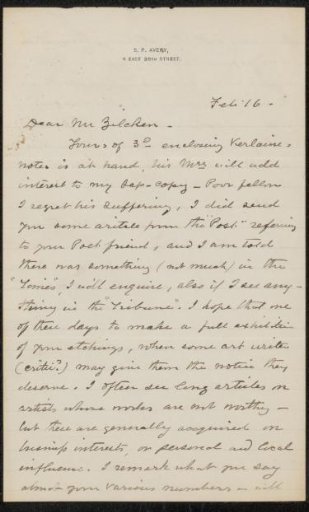 S. P. AVERY,
4 EAST 38TH STREET.
Feb 16 -
Dear Mr Zilcken -
Yours of 3d enclosing Verlaines
notes is at hand, his Mss will add
interest to my  copy - Poor fellow
I regret his suffering, I did send
you some articles from the "Post" referring
to your Poet friend, and I am told
there was something (not much) in the
"Times", I will enquire, also if I see any-
thing in the "Tribune". I hope that one
of these days to make a full exhibition
of your etchings, when some art writer
(critic?) may give them the notice they
deserve. I often see long articles on
artists whose works are not worthy -
but these are generally acquired on
business interests, or personal and local
influence. I remark what you say
about your various numbers - will